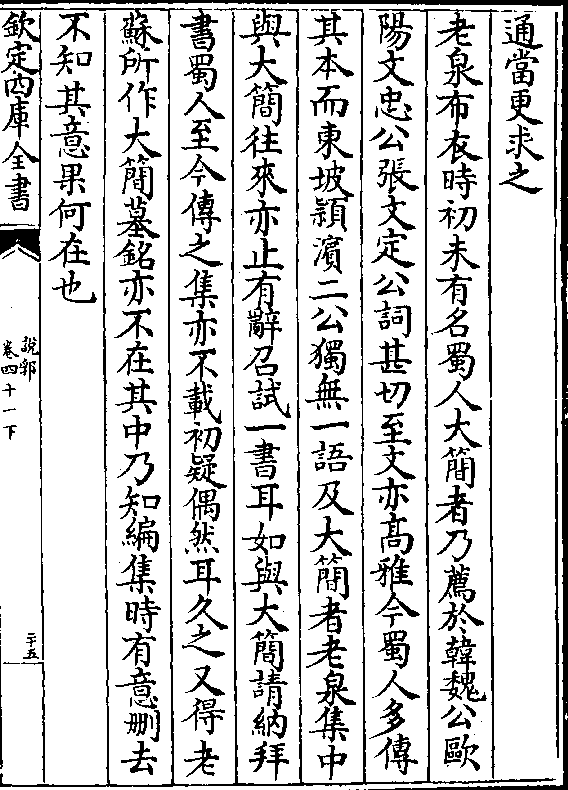 通當更求之
老泉布衣時初未有名蜀人大簡者乃薦於韓魏公歐
陽文忠公張文定公詞甚切至文亦高雅今蜀人多傳
其本而東坡穎濵二公獨無一語及大簡者老泉集中
與大簡往來亦止有辭召試一書耳如與大簡請納拜
書蜀人至今傳之集亦不載初疑偶然耳久之又得老
蘇所作大簡墓銘亦不在其中乃知編集時有意刪去
不知其意果何在也
欽定四庫全書
說郛
卷四十一下
二十五